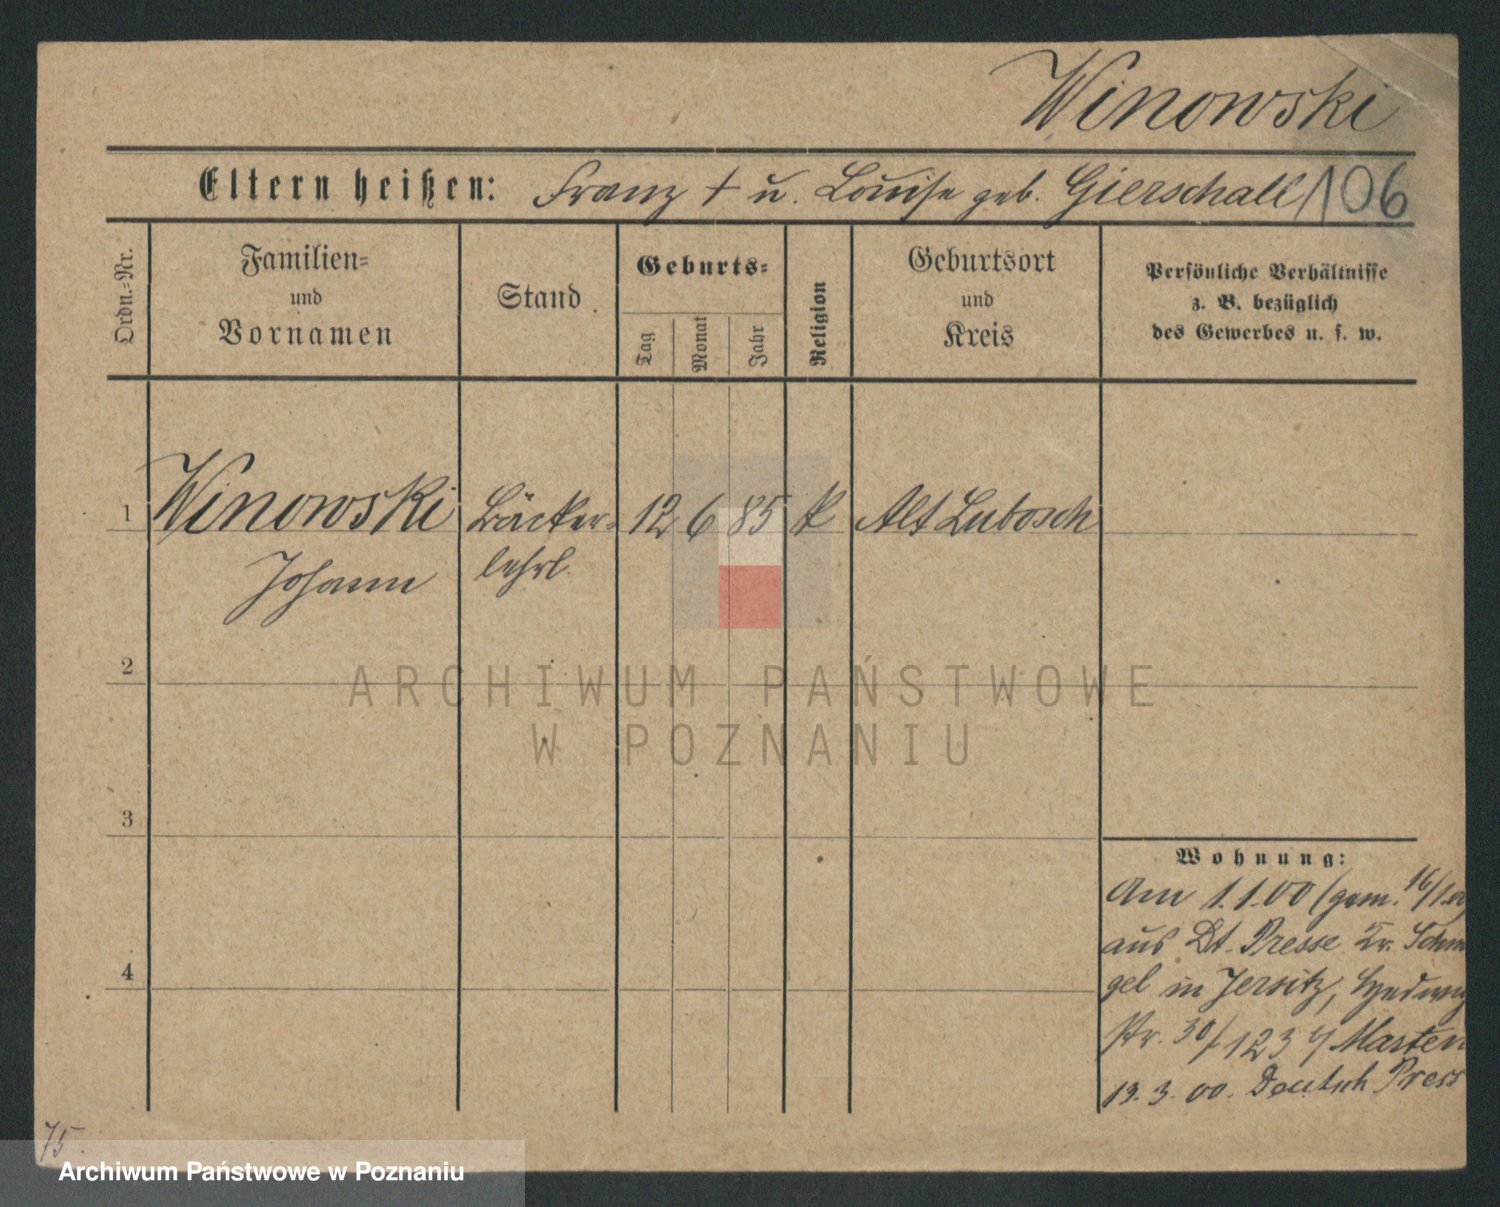 Winowski
Eltern heißen: Franz † u. Louise geb. Gierschall 106
Ordn.=Nr.
Familien=
und
Vornamen
Stand
Geburts=
Tag
Monat
Jahr
Religion
Geburtsort
und
Kreis
Persönliche Verhältnisse
z. B. bezüglich
des Gewerbes u. s. w.
1 Winowski Bäcker= 12 6 85 k Alt Lubosch
Johann lehrl.
2
ARCHIWUM PAŃSTWOWE
W POZNANIU
3
Wohnung:
Am 1.1.00 (gem. 16/1.00)
aus Dt. Presse Kr. Schm
4
gel in Jersitz, Hedwig
Str. 30/123 b/ Marten
19.3.00. Deutsch Press
75.
Archiwum Państwowe w Poznaniu